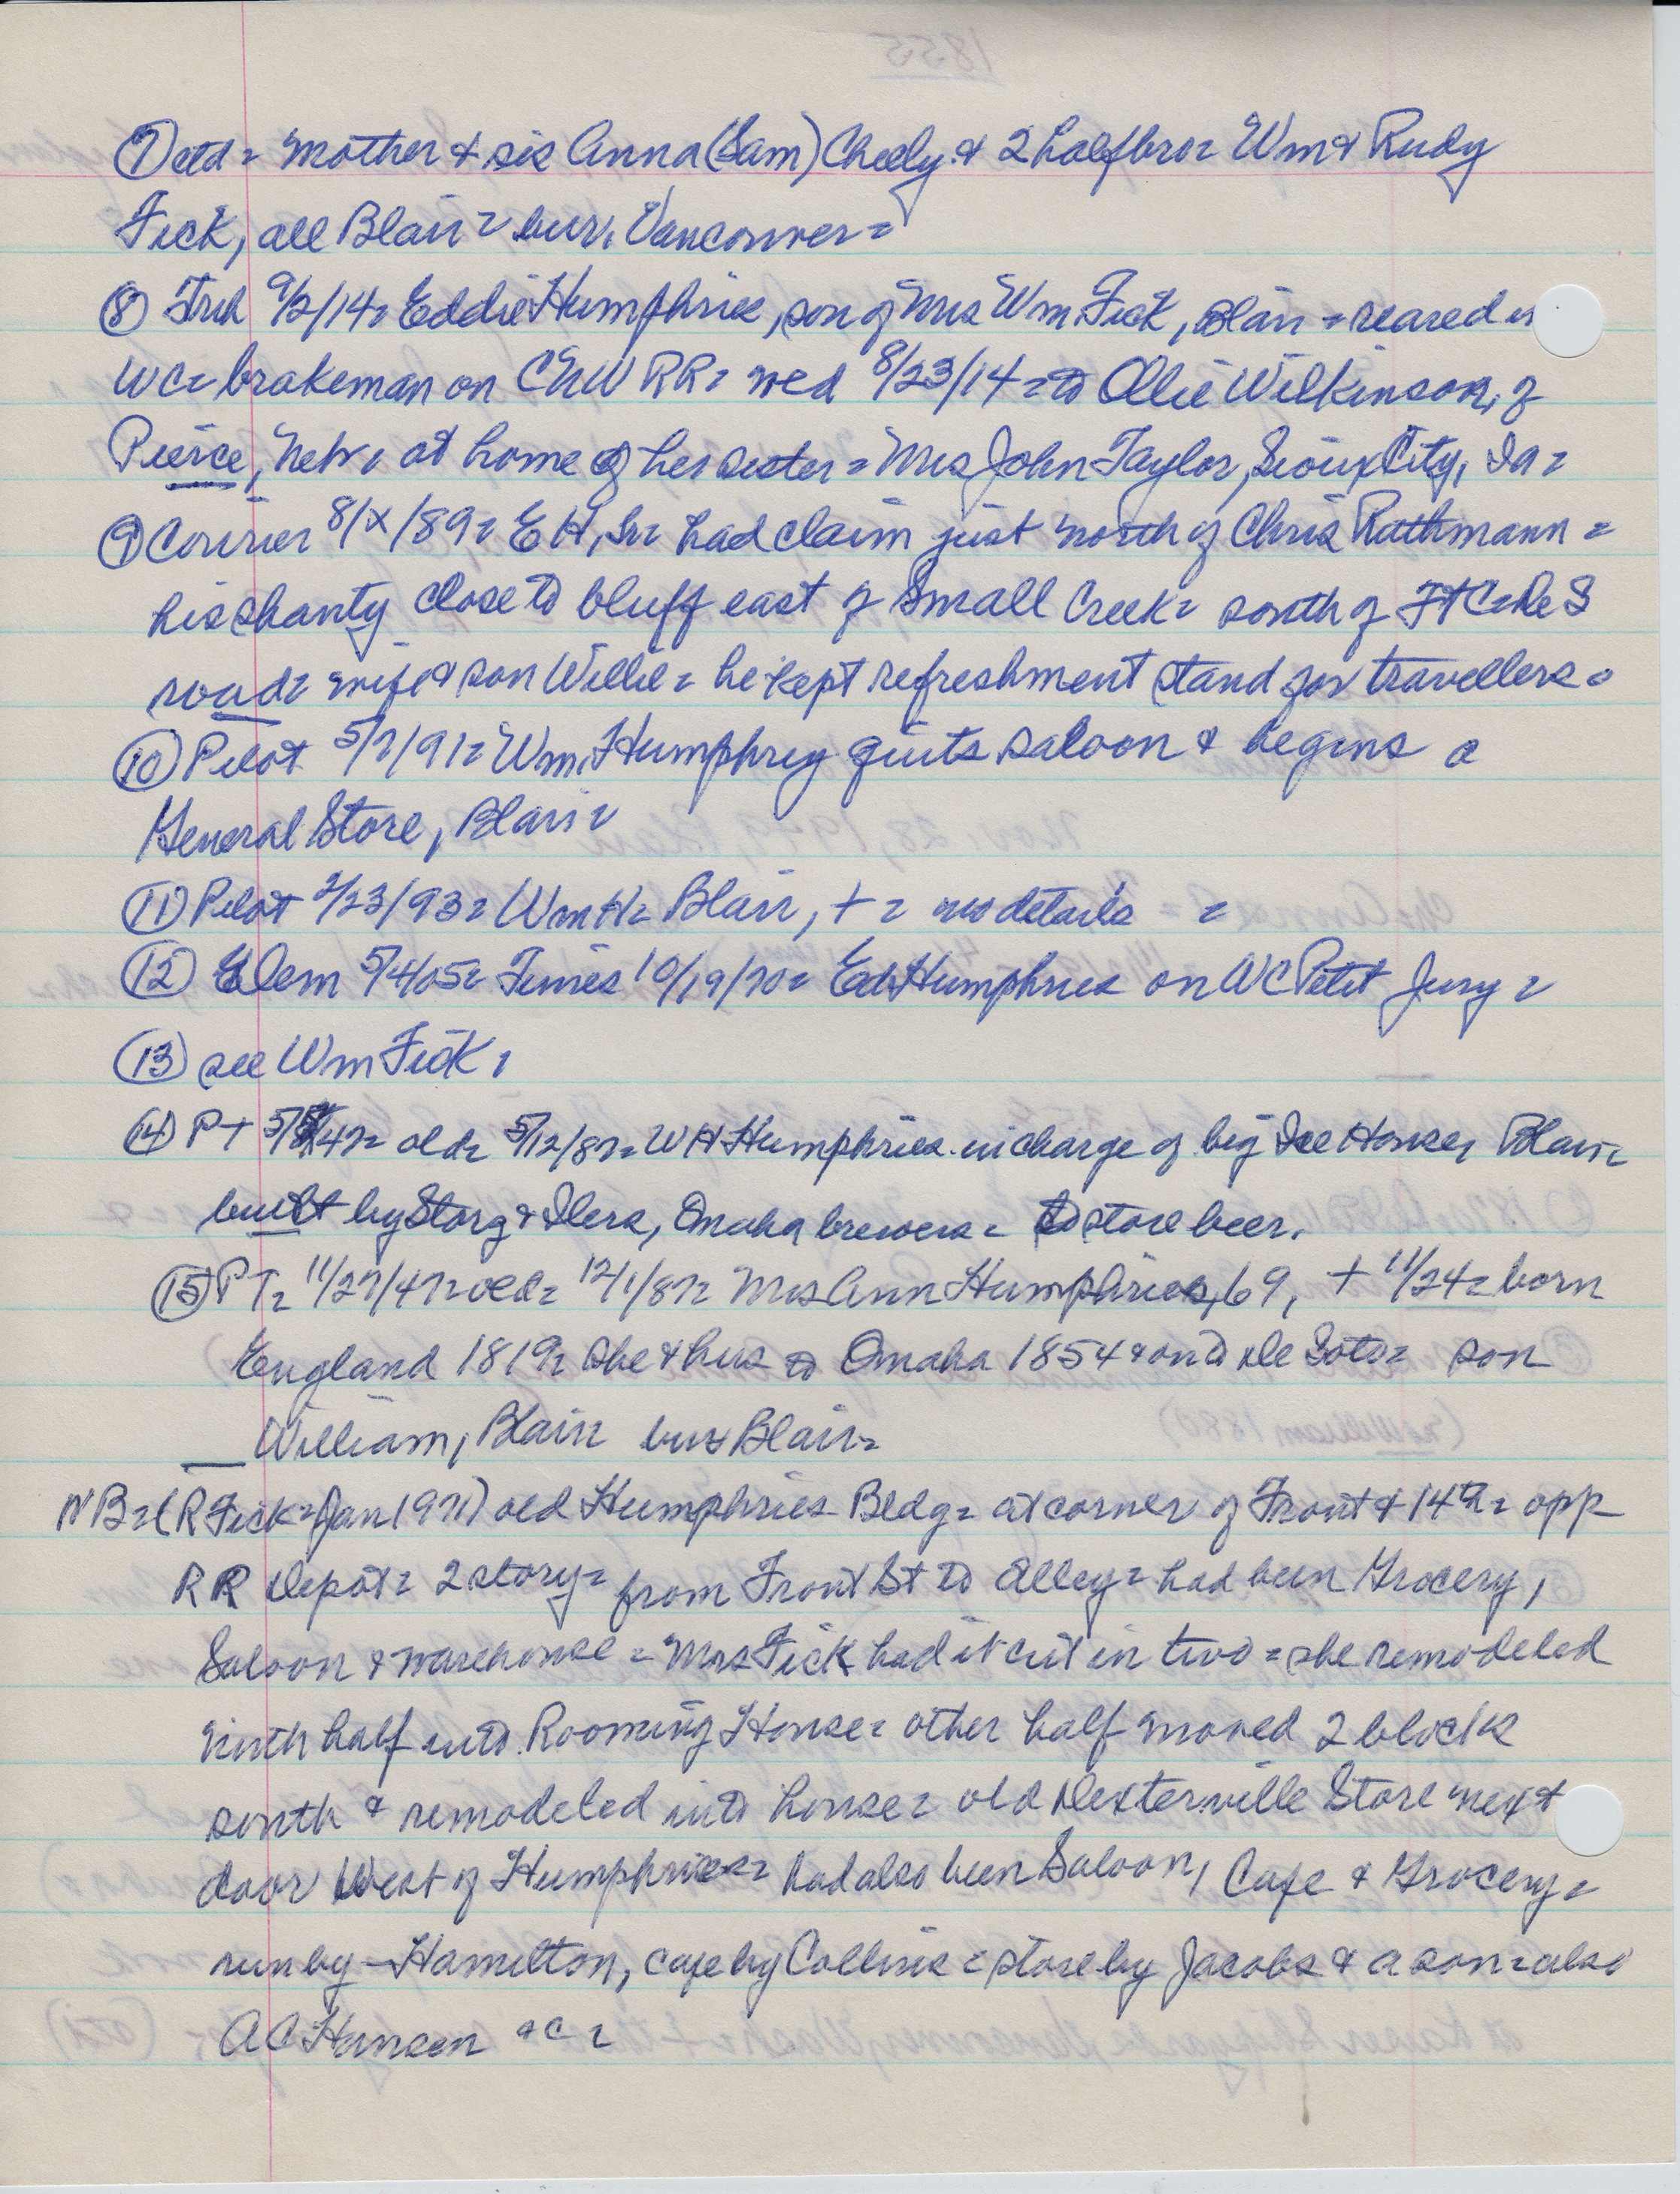 ⑦ ctd = mother & sis Anna (Sam) Cheely & 2 half bro = Wm & Rudy
Fick, all Blair = bur. Vancouver =
⑧ Trib 9/2/14 = Eddie Humphries, son of Mrs Wm Fick, Blair = reared in
WC = brakeman on C&NW RR = wed 8/23/14 = to Ollie Wilkinson, of
Pierce, Nebr, at home of her sister = Mrs John Taylor, Sioux City, Ia =
⑨ Courier 8/x/89 = E H, Sr = had claim just north of Chris Rathmann =
his shanty close to bluff east of Small Creek = south of Ft C = De S
road = wife & son Willie = he kept refreshment stand for travellers =
⑩ Pilot 5/7/91 = Wm. Humphrey quits saloon & begins a
General Store, Blair =
⑪ Pilot 2/23/93 = Wm H = Blair, + = no details =
⑫ Dem 5/4/05 = Times 10/19/70 = Ed Humphries on WC Petit Jury =
⑬ see Wm Fick,
⑭ PT 47 = old = 5/12/87 = W H Humphries in charge of big Ice House, Blair =
built by Storz & Ilers, Omaha brewers = to store beer.
⑮ PT = 11/27/47 = old = 12/1/87 = Mrs Ann Humphries, 69, + 11/24 = born
England 1819 = she & hus to Omaha 1854 & on to De Soto = son
William, Blair = bur Blair =
NB = (R Fick = Jan 1971) old Humphries Bldg = at corner of Front & 14th = opp
RR Depot = 2 story = from Front St to Alley = had been Grocery,
Saloon & warehouse = Mrs Fick had it cut in two = she remodeled
north half into Rooming House = other half moved 2 blocks
south & remodeled into house = old Dexterville Store next
door West of Humphries = had also been Saloon, Cafe & Grocery =
run by — Hamilton, cafe by Collins = store by Jacobs & a son = also
A C Hansen &c =